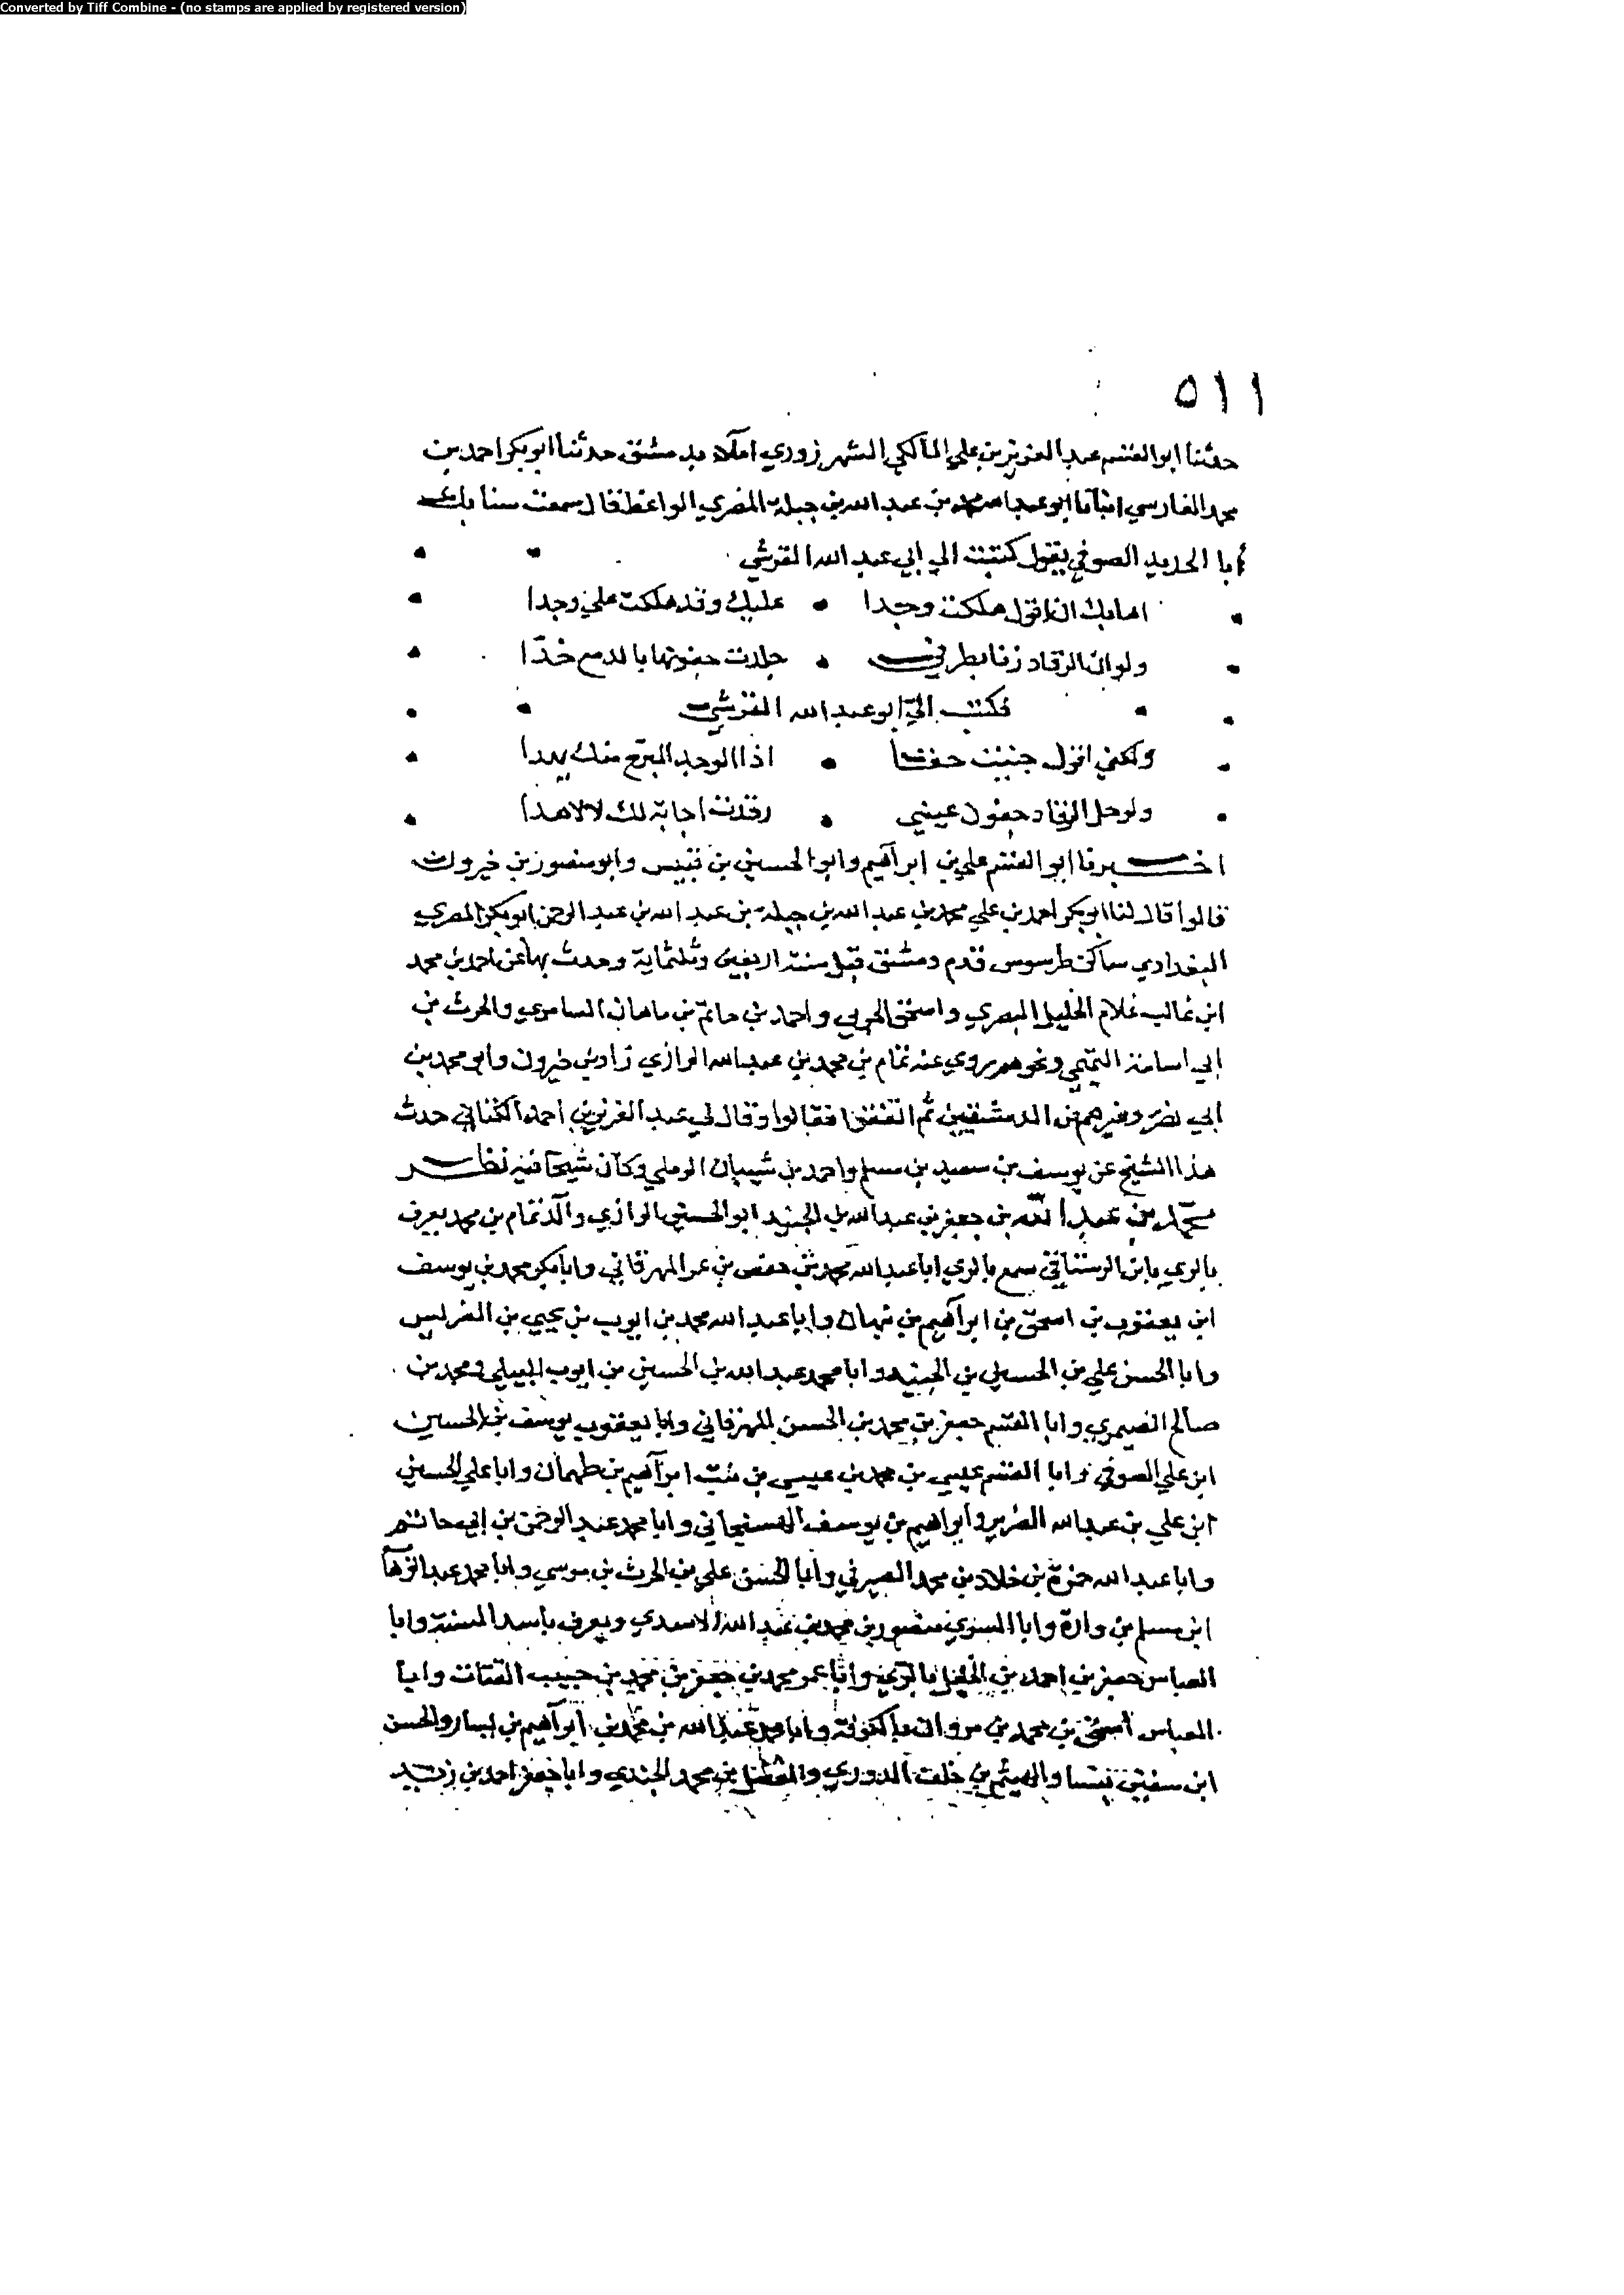 Converted by Tiff Combine - (no stamps are applied by registered version)
٥١١
حدثنا ابو القسم عبد العزيز بن علي المالكي الشهرزوري املاء بدمشق حدثنا ابو بكر احمد بن
محمد الفارسي انبانا ابو عبد الله محمد بن عبد الله بن جبلة المضري الواعظ قال سمعت
أبا الحديد الصوفي يقول كتبت الي ابي عبد الله القرشي
اهابك ان اقول هلكت وجدا • عليك وقد هلكت علي وجدا
ولو ان الرقاد دنا بطرفي • جلدت جفونها بالدمع خدّا
فكتب اليّ ابو عبد الله القرشي
ولكني اقول جننت حقا • اذا الوجد المبرّح منك يبدا
ولو حل الرقاد جفون عيني • رقدت اجابة لك لا لاهدا
اخبرنا ابو القسم علي بن ابراهيم وابو الحسين بن قبيس وابو منصور بن خيرون
قالوا قال لنا ابو بكر احمد بن علي محمد بن عبد الله بن جبلة بن عبد الله بن عبد الرحمن ابو بكر المصري
البغدادي ساكن طرسوس قدم دمشق قبل سنة اربعين وثلثماية وحدث بها عن احمد بن محمد
ابن غالب غلام الخليل البصري واسحق الحربي واحمد بن حاتم بن ماهان السامري والحرث بن
ابي اسامة التميمي ونحوهم روي عنه تمام بن محمد بن عبد الله الرازي زاد بن خيرون وابو محمد بن
ابي نصر وغيرهم من الدمشقيين ثم اتفقوا فقالوا وقال لي عبد العزيز بن احمد الكتاني حدث
هذا الشيخ عن يوسف بن سعيد بن مسلم واحمد بن شيبان الرملي وكان شيخا فيه نظر
محمد بن عبد الله بن جعفر بن عبد الله بن الجنيد ابو الحسين الرازي والد تمام بن محمد يعرف
بالري بابن الرستاقي سمع بالري ابا عبد الله محمد بن حفص بن عمر المهرقاني وابا بكر محمد بن يوسف
ابن يعقوب بن اسحق بن ابراهيم بن نبهان وابا عبد الله محمد بن ايوب بن يحيي بن الضريس
وابا الحسن علي بن الحسين بن الجنيد وابا محمد عبد الله بن الحسين بن ايوب ومحمد بن
صالح الصيمري وابا القسم جعفر بن محمد بن الحسن المهرقاني وابا يعقوب يوسف بن الحسين
ابن علي الصوفي وابا القسم عيسي بن محمد بن عيسي بن ابراهيم بن طهمان وابا علي الحسين
ابن علي بن عبد الله الضرير وابراهيم بن يوسف الهسنجاني وابا محمد عبد الرحمن بن ابي حاتم
وابا عبد الله حمزة بن خلاد بن محمد الصيرفي وابا الحسن علي بن الحرث بن موسي وابا محمد عبد الوهاب
ابن مسلم بن وارة وابا السري منصور بن محمد بن عبد الله الاسدي ويعرف باسد السنة وابا
العباس جعفر بن احمد بن الخليل بالري وابا عمر محمد بن جعفر بن محمد بن حبيب القتات وابا
العباس اسحق بن محمد بن مروان بالكوفة وابا محمد عبد الله بن محمد بن ابراهيم بن يسار والحسن
ابن سفين بنسا والهيثم بن خلف الدوري والمفضل بن محمد الجندي وابا جعفر احمد بن